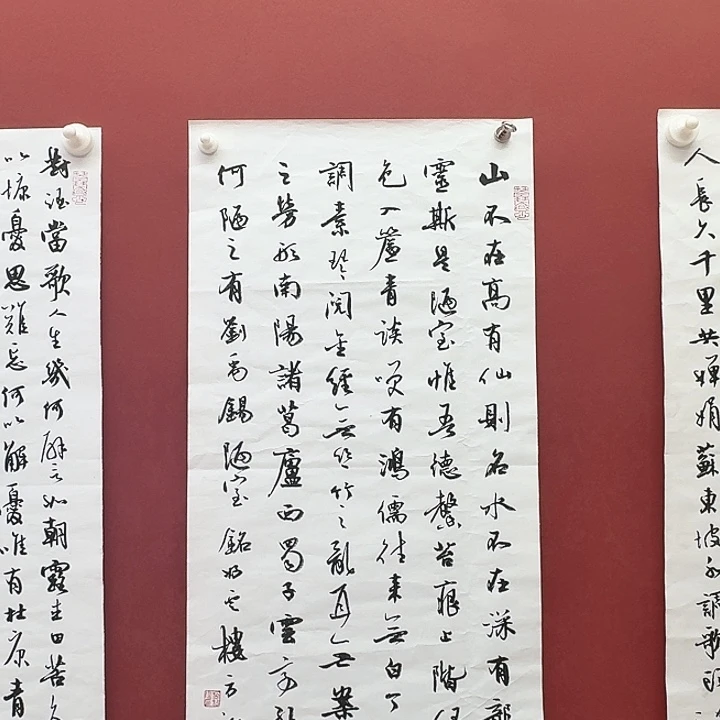 人長久千里共嬋娟蘇東坡水調歌頭
山不在高有仙則名水不在深有
靈斯是陋室惟吾德馨苔痕上階
色入簾青談咲有鴻儒往來無白丁
調素琴閱金經無絲竹之亂耳無案
之勞形南陽諸葛廬西蜀子雲亭孔
何陋之有劉禹錫陋室銘
樓方
對酒當歌人生幾何譬如朝露去日苦多
以慷憂思難忘何以解憂唯有杜康青